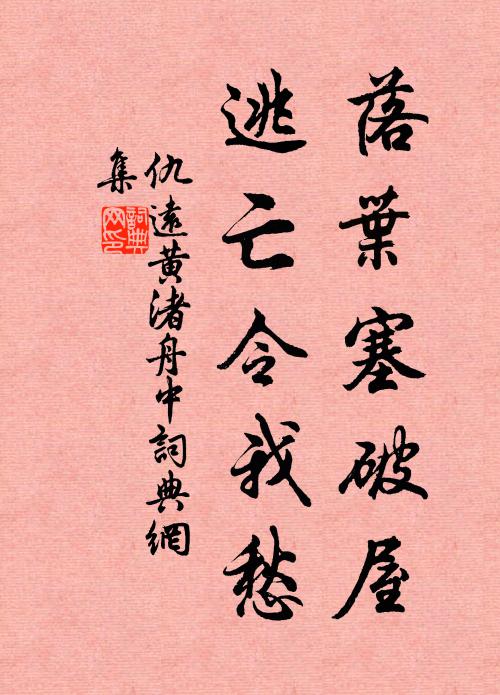 落葉塞破屋
逃亡令我愁
仇遠黄渚舟中詞典網
集
詞典
网印